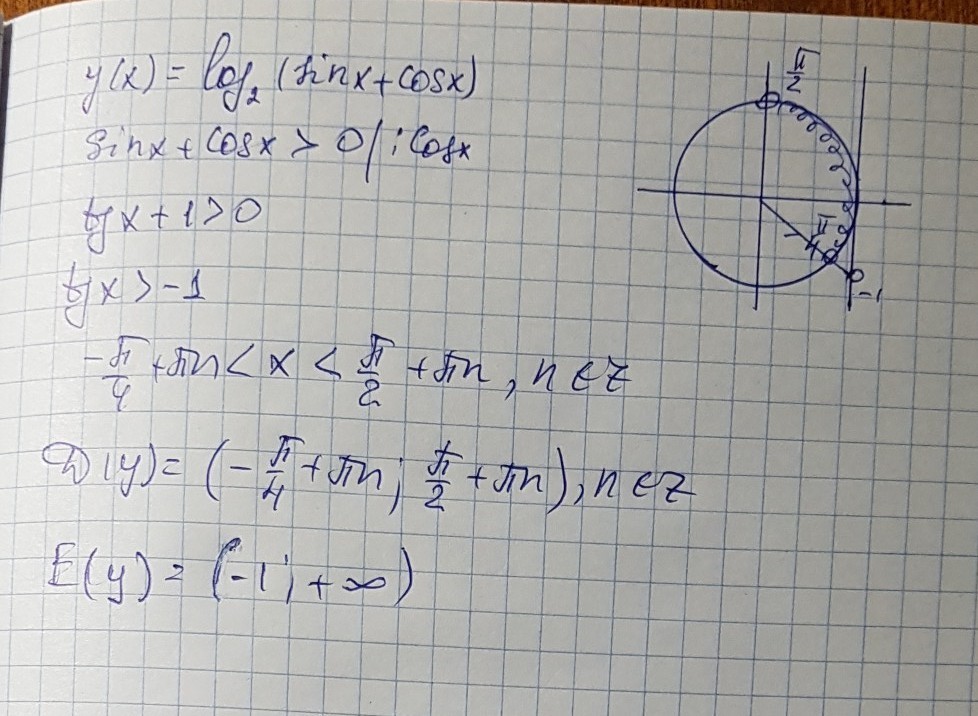 y(x) = log₂ (sinx+cosx)
sinx + cosx > 0 | : cosx
tgx + 1 > 0
tgx > -1
-π/4 + πn < x < π/2 + πn, n ∈ Z
D(y) = (-π/4 + πn; π/2 + πn), n ∈ Z
E(y) = (-1; +∞)
π/2
-π/4
-1